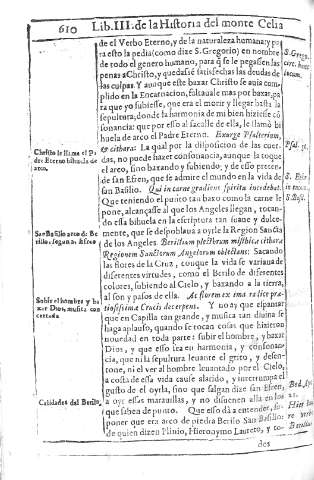 610 Lib. III. de la Historia del monte Celia
de el Verbo Eterno, y de la naturaleza humana: y para
esto la pedia (como dize S. Gregorio) en nombre
de todo el genero humano, para q̃ se le pegassen las
penas a Christo, y quedasse satisfechas las deudas de
las culpas. Y aunque esta musica de Christo se avia cumplido
en la Encarnacion, faltauale mas por bazar, pa
ra que yo subiesse, que era el morir y llegar hasta la
sepultura, donde la harmonia de mi bien hiziesse consonancia:
que por esso al sacalle de ella, le llamò bihuela
de arco el Padre Eterno. Exurge Psalterium,
& cithara: La qual por la disposicion de las cuerdas,
no puede hazer consonancia, aunque la toque
el arco, sino bazando y subiendo; y de esso pretende
san Efren, que se admire el mundo en la vida de
san Basilio. Qui in carne gradient spiritu incedebat.
Que teniendo el punto tan baxo como la carne lo
pone, alcançasse al que los Angeles llegan, tocando
essa bihuela en la escriptura tan suaue y dulcemente,
que se despoblaua a oyrle la Region Sancta
de los Angeles. Berillium plectorum mysthica cithara
Regionem Sanctorum Angelorum oblectans: Sacando
las flores de la Cruz, conque la vida se variaua de
diferentes virtudes, como el Berilo de diferentes
colores, subiendo al Cielo, y bazando a la tierra,
al son y pasos de ella. Ac florem ex ima radice pratiosissima
Crucis decerpens. Y no ay que espantar
que en Capilla tan grande, y musica tan diuina se
haga aplauso, quando se tocan cosas que hizieron
nouedad en toda parte: subir el hombre, y bazar
Dios, y que esso sea en harmonia, y consonancia,
que ni la sepultura leuante el grito, y desentone,
ni el ver al hombre leuantado por el Cielo,
a costa de essa vida cause alarido, y interrumpa el
gusto de el oyrla, sino que salgan dize san Efren,
a oyr essas marauillas, y no disuenen alla en los
que saben de punto. Que esso dà a entender, suponer
que era arco de piedra Berilo San Basilio:
de quien dizen Plinio, Hieronymo Laureto, y todos
Christo le llama el Padre
Eterno bihuela de
arco.
San Basilio arco de Berilo,
segun san Efren
Subir el hombre y bazar
Dios, musica concertada
Calidades del Berilo
S. Grego.
Psal. 56.
S. Basi.